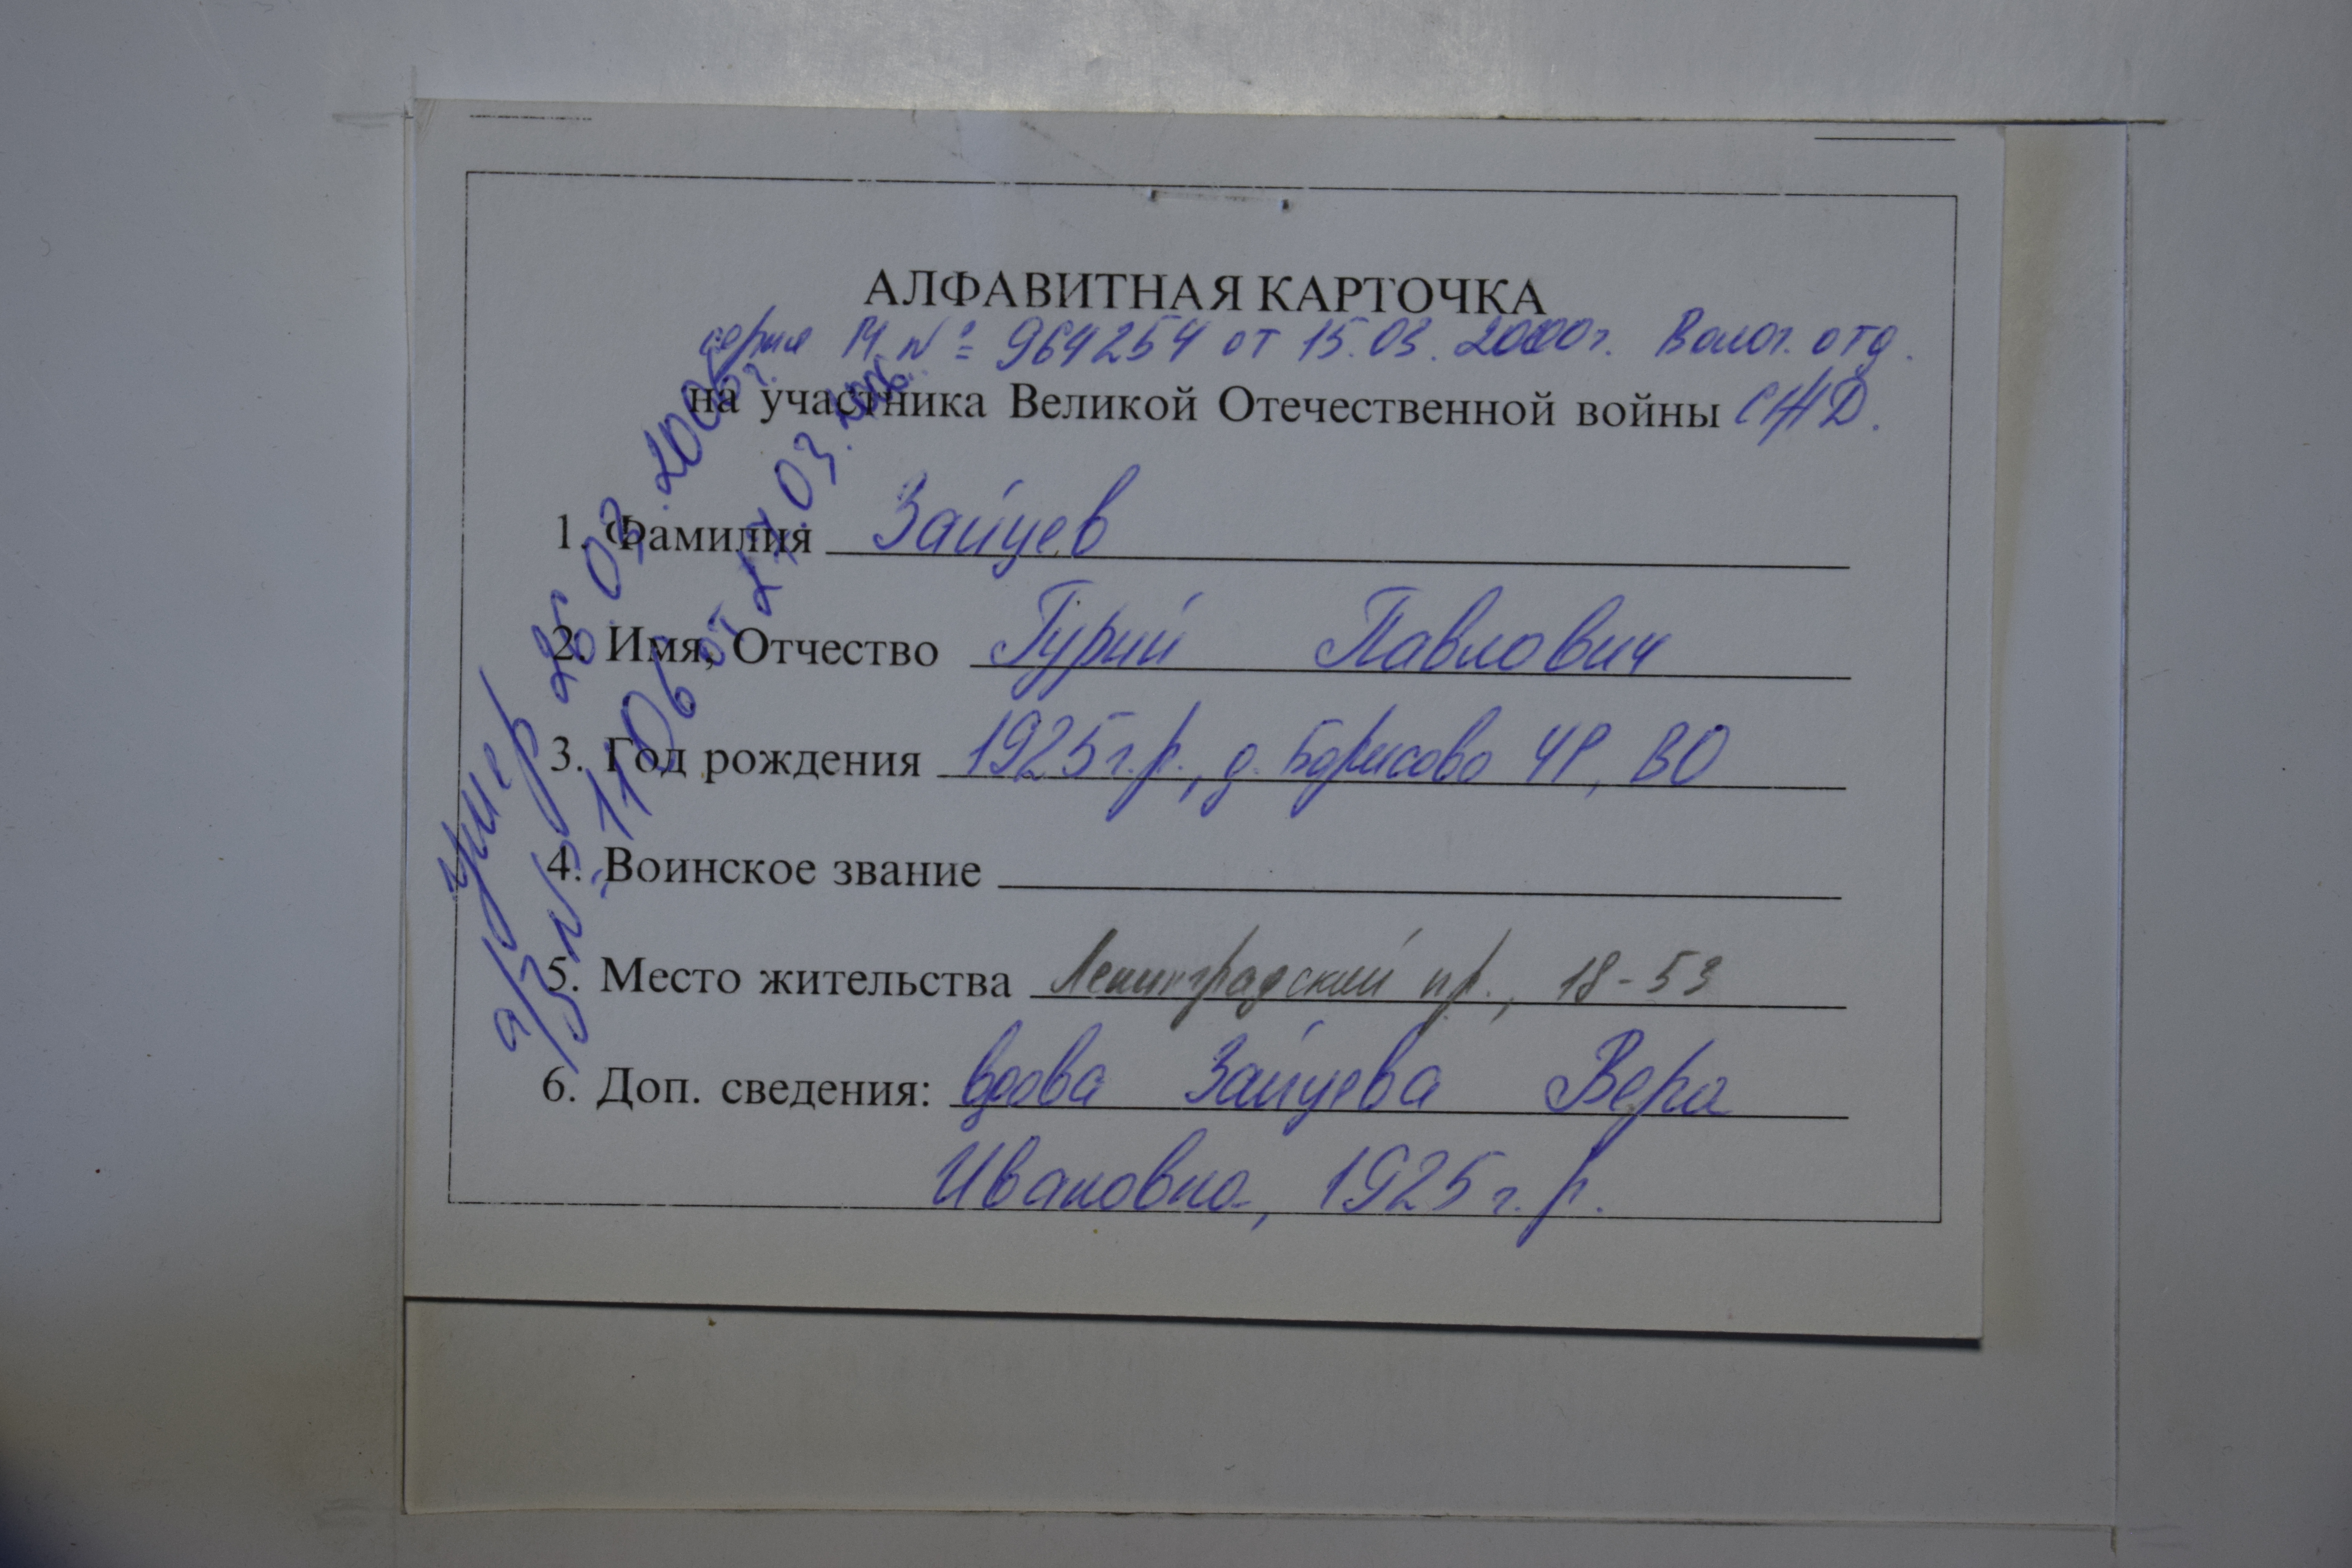 АЛФАВИТНАЯ КАРТОЧКА
серия М № 964254 от 15.03.2000г. Волог. отд.
на участника Великой Отечественной войны СЖД.
1. Фамилия Зайцев
2. Имя, Отчество Гурий Павлович
3. Год рождения 1925г.р., д. Борисово ЧР, ВО
4. Воинское звание
5. Место жительства Ленинградский пр., 18-53
6. Доп. сведения: вдова Зайцева Вера
Ивановна, 1925г.р.
умер 26.03.2006г.
а/з № 1106 от 27.03.2006